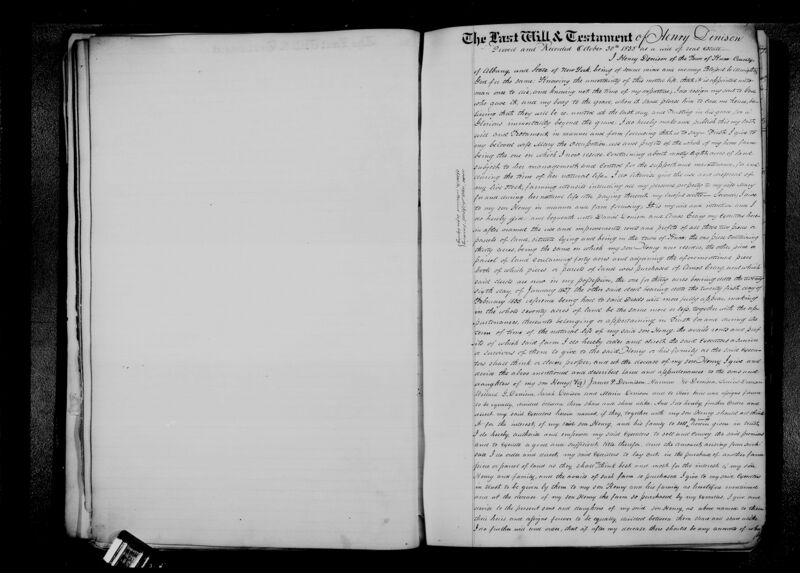 The Last Will & Testament of Henry Denison
Proved and Recorded October 30th 1838 as a will of real estate
I Henry Denison of the Town of Knox County
of Albany and State of New York, being of sound mind and memory Blessed be Almighty
God for the same: Knowing the uncertainty of this mortal life, that it is appointed unto
man once to die, and knowing not the time of my departure, I do resign my soul to him
who gave it, and my body to the grave, when it shall please him to call me hence, be-
lieving that they will be re united at the last day and trusting in his grace for a
Glorious immortality beyond the grave. I do hereby make and publish this my last
will and Testament in manner and form following that is to say. First I give to
my beloved wife Mary the occupation use and profits of the whole of my home farm
being the one on which I now reside containing about eighty acres of land
subject to her management and control for the support and maintenance, for and
during the time of her natural life. I do likewise give the use and disposal of
my live stock, farming utensils including all my personal property to my wife Mary
for and during her natural life after paying thereout my honest debts. Second, I give
to my son Henry in manner and form following. It is my will and intention and I
do hereby give and bequeath unto Daniel Denison and Amos Crary my executors here-
in after named the use and improvements rents and profits of all those two pieces or
parcels of land, situate lying and being in the town of Knox, the one piece containing
thirty acres, being the same on which my son Henry now resides, the other piece or
parcel of land containing forty acres and adjoining the aforementioned piece
both of which pieces or parcels of land was purchased of Amos Crary, and which
said deeds are now in my possession, the one for thirty acres bearing date the twenty
sixth day of January 1837 the other said deed bearing date the twenty first day of
February 1838 reference being had to said Deeds will more fully appear making
in the whole seventy acres of land be the same more or less, together with the ap-
purtenances, thereunto belonging or appertaining in Trust for and during the
term of time of the natural life of my said son Henry, the avails rents and prof-
its of which said farm I do hereby order and direct the said executors
or survivors of them to give to the said Henry or his family as the said execu-
tors shall think or deem proper, and at the decease of my son Henry, I give and
devise the above mentioned and described land and appurtenances to the sons and
daughters of my son Henry (Viz) James P. Dennison, Denison, Denison
Willard Denison, Sarah Denison and Maria Denison and to their heirs and assigns forever
to be equally divided between them share and share alike. And I do hereby further order and
direct my said Executors herein named, if they, together with my son Henry should all think
it for the interest, of my said son Henry, and his family to sell the farm herein given in trust,
I do hereby authorize and empower my said Executors to sell and convey the said premises
and to execute a good and sufficient title therefor. And the amount arising from such
sale I do order and direct, my said Executors to lay out in the purchase of another farm
piece or parcel of land as they shall think best and most for the interest of my son
Henry and family, and the avails of such farm so purchased I give to my said Executors
in trust to be given by them to my son Henry and his family as heretofore mentioned
and at the decease of my son Henry the farm so purchased by my Executors, I give and
devise to the present sons and daughters of my said son Henry, as above named to them
their heirs and assigns forever to be equally divided between them share and share alike
I do further will and order, that if after my decease there should be any